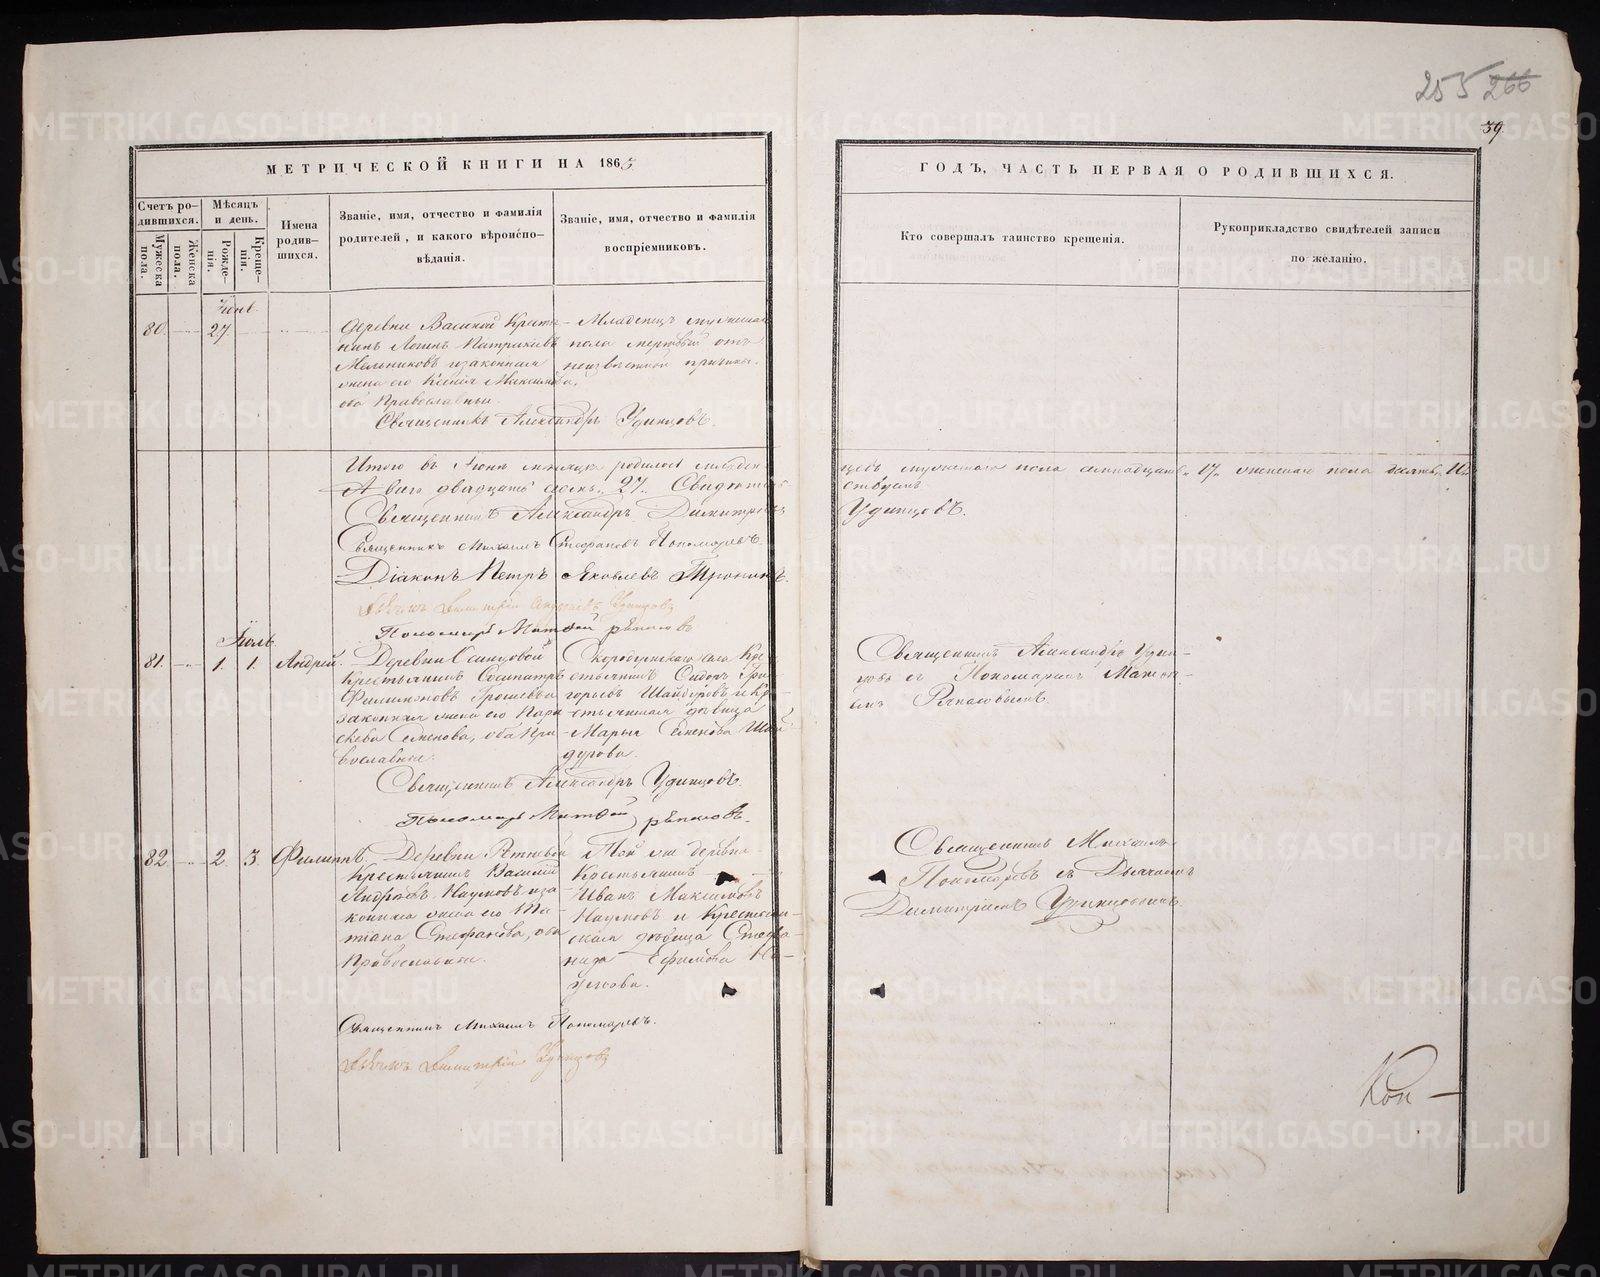 255 266
39
МЕТРИЧЕСКОЙ КНИГИ НА 1865
ГОДЪ, ЧАСТЬ ПЕРВАЯ О РОДИВШИХСЯ.
Счетъ родившихся.
Мужеска пола.
Женска пола.
Мѣсяцъ и день.
Рожденія.
Крещенія.
Имена родившихся.
Званіе, имя, отчество и фамилія
родителей, и какого вѣроиспо-
вѣданія.
Званіе, имя, отчество и фамилія
воспріемниковъ.
Кто совершалъ таинство крещенія.
Рукоприкладство свидѣтелей записи
по желанію.
Іюнь
80. 27.
Деревни Крестья-
нинъ Логинъ Патрикіевъ
Мельниковъ и законная
жена его Ксенія Максимова,
оба Православные.
Младенецъ мужеска
пола мертвый отъ
неизвѣстной причины.
Священникъ Александръ Удинцовъ.
Итого въ Іюнѣ мѣсяцѣ родилось младен-
цевъ мужескаго пола семнадцать „17„ женскаго пола десять „10„
А всего двадцать семь „27„ Свидѣтель-
ствуемъ:
Священникъ Александръ Димитріевъ
Удинцовъ.
Священникъ Михаилъ Стефановъ Пономаревъ.
Діаконъ Петръ Яковлевъ Тронинъ.
Дьячекъ Димитрій Удинцовъ
Пономарь Матвей Рѣпковъ
Іюль
81. 1. 1. Андрей.
Деревни
Крестьянинъ Сосипатръ
Филимоновъ и
законная жена его Пара-
скева Семенова, оба Пра-
вославные.
села Кре-
стьянинъ Сидоръ Гри-
горьевъ Шайдуровъ и Кре-
стьянская дѣвица
Марья Семенова Шай-
дурова.
Священникъ Александръ Удин-
цовъ съ Пономаремъ Матве-
емъ Рѣпковымъ.
Священникъ Александръ Удинцовъ.
Пономарь Матвей Рѣпковъ.
82 2 3 Филиппъ.
Деревни
Крестьянинъ Василій
Андреевъ Наумовъ и за-
конная жена его Та-
тіана Стефанова, оба
Православные.
Той же деревни
Крестьянинъ
Иванъ Максимовъ
Наумовъ и Крестьян-
ская дѣвица Стефа-
нида Ефимова На-
умова.
Священникъ Михаилъ
Пономаревъ съ Дьячкомъ
Димитріемъ Удинцовымъ.
Священникъ Михаилъ Пономаревъ.
Дьячекъ Димитрій Удинцовъ
Кон-
METRIKI.GASO-URAL.RU